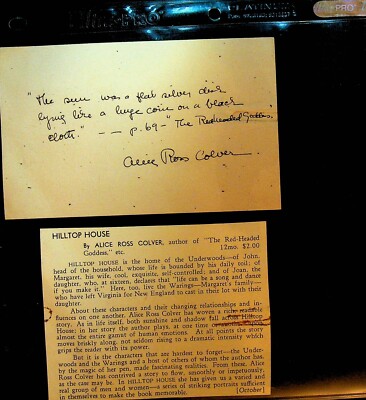 PLATINUM
PRO
"The sun was a flat silver disk
lying like a huge coin on a black
cloth." -- p. 69 - "The Redheaded Goddess."
Alice Ross Colver.
HILLTOP HOUSE
By ALICE ROSS COLVER, author of "The Red-Headed
Goddess," etc. 12mo. $2.00
HILLTOP HOUSE is the home of the Underwoods—of John,
head of the household, whose life is bounded by his daily toil; of
Margaret, his wife, cool, exquisite, self-controlled; and of Joan, the
daughter, who, at sixteen, declares that "life can be a song and dance
if you make it." Here, too, live the Warings—Margaret's family—
who have left Virginia for New England to cast in their lot with their
daughter.
About these characters and their changing relationships and in-
fluences on one another, Alice Ross Colver has woven a richly readable
story. As in life itself, both sunshine and shadow fall across Hilltop
House; in her story the author plays, at one time or another, upon
almost the entire gamut of human emotions. At all points the story
moves briskly along, not seldom rising to a dramatic intensity which
grips the reader with its power.
But it is the characters that are hardest to forget—the Under-
woods and the Warings and a host of others of whom the author has,
by the magic of her pen, made fascinating realities. From these, Alice
Ross Colver has contrived a story to flow, smoothly or impetuously,
as the case may be. In HILLTOP HOUSE she has given us a varied and
real group of men and women—a series of striking portraits sufficient
in themselves to make the book memorable. [October]